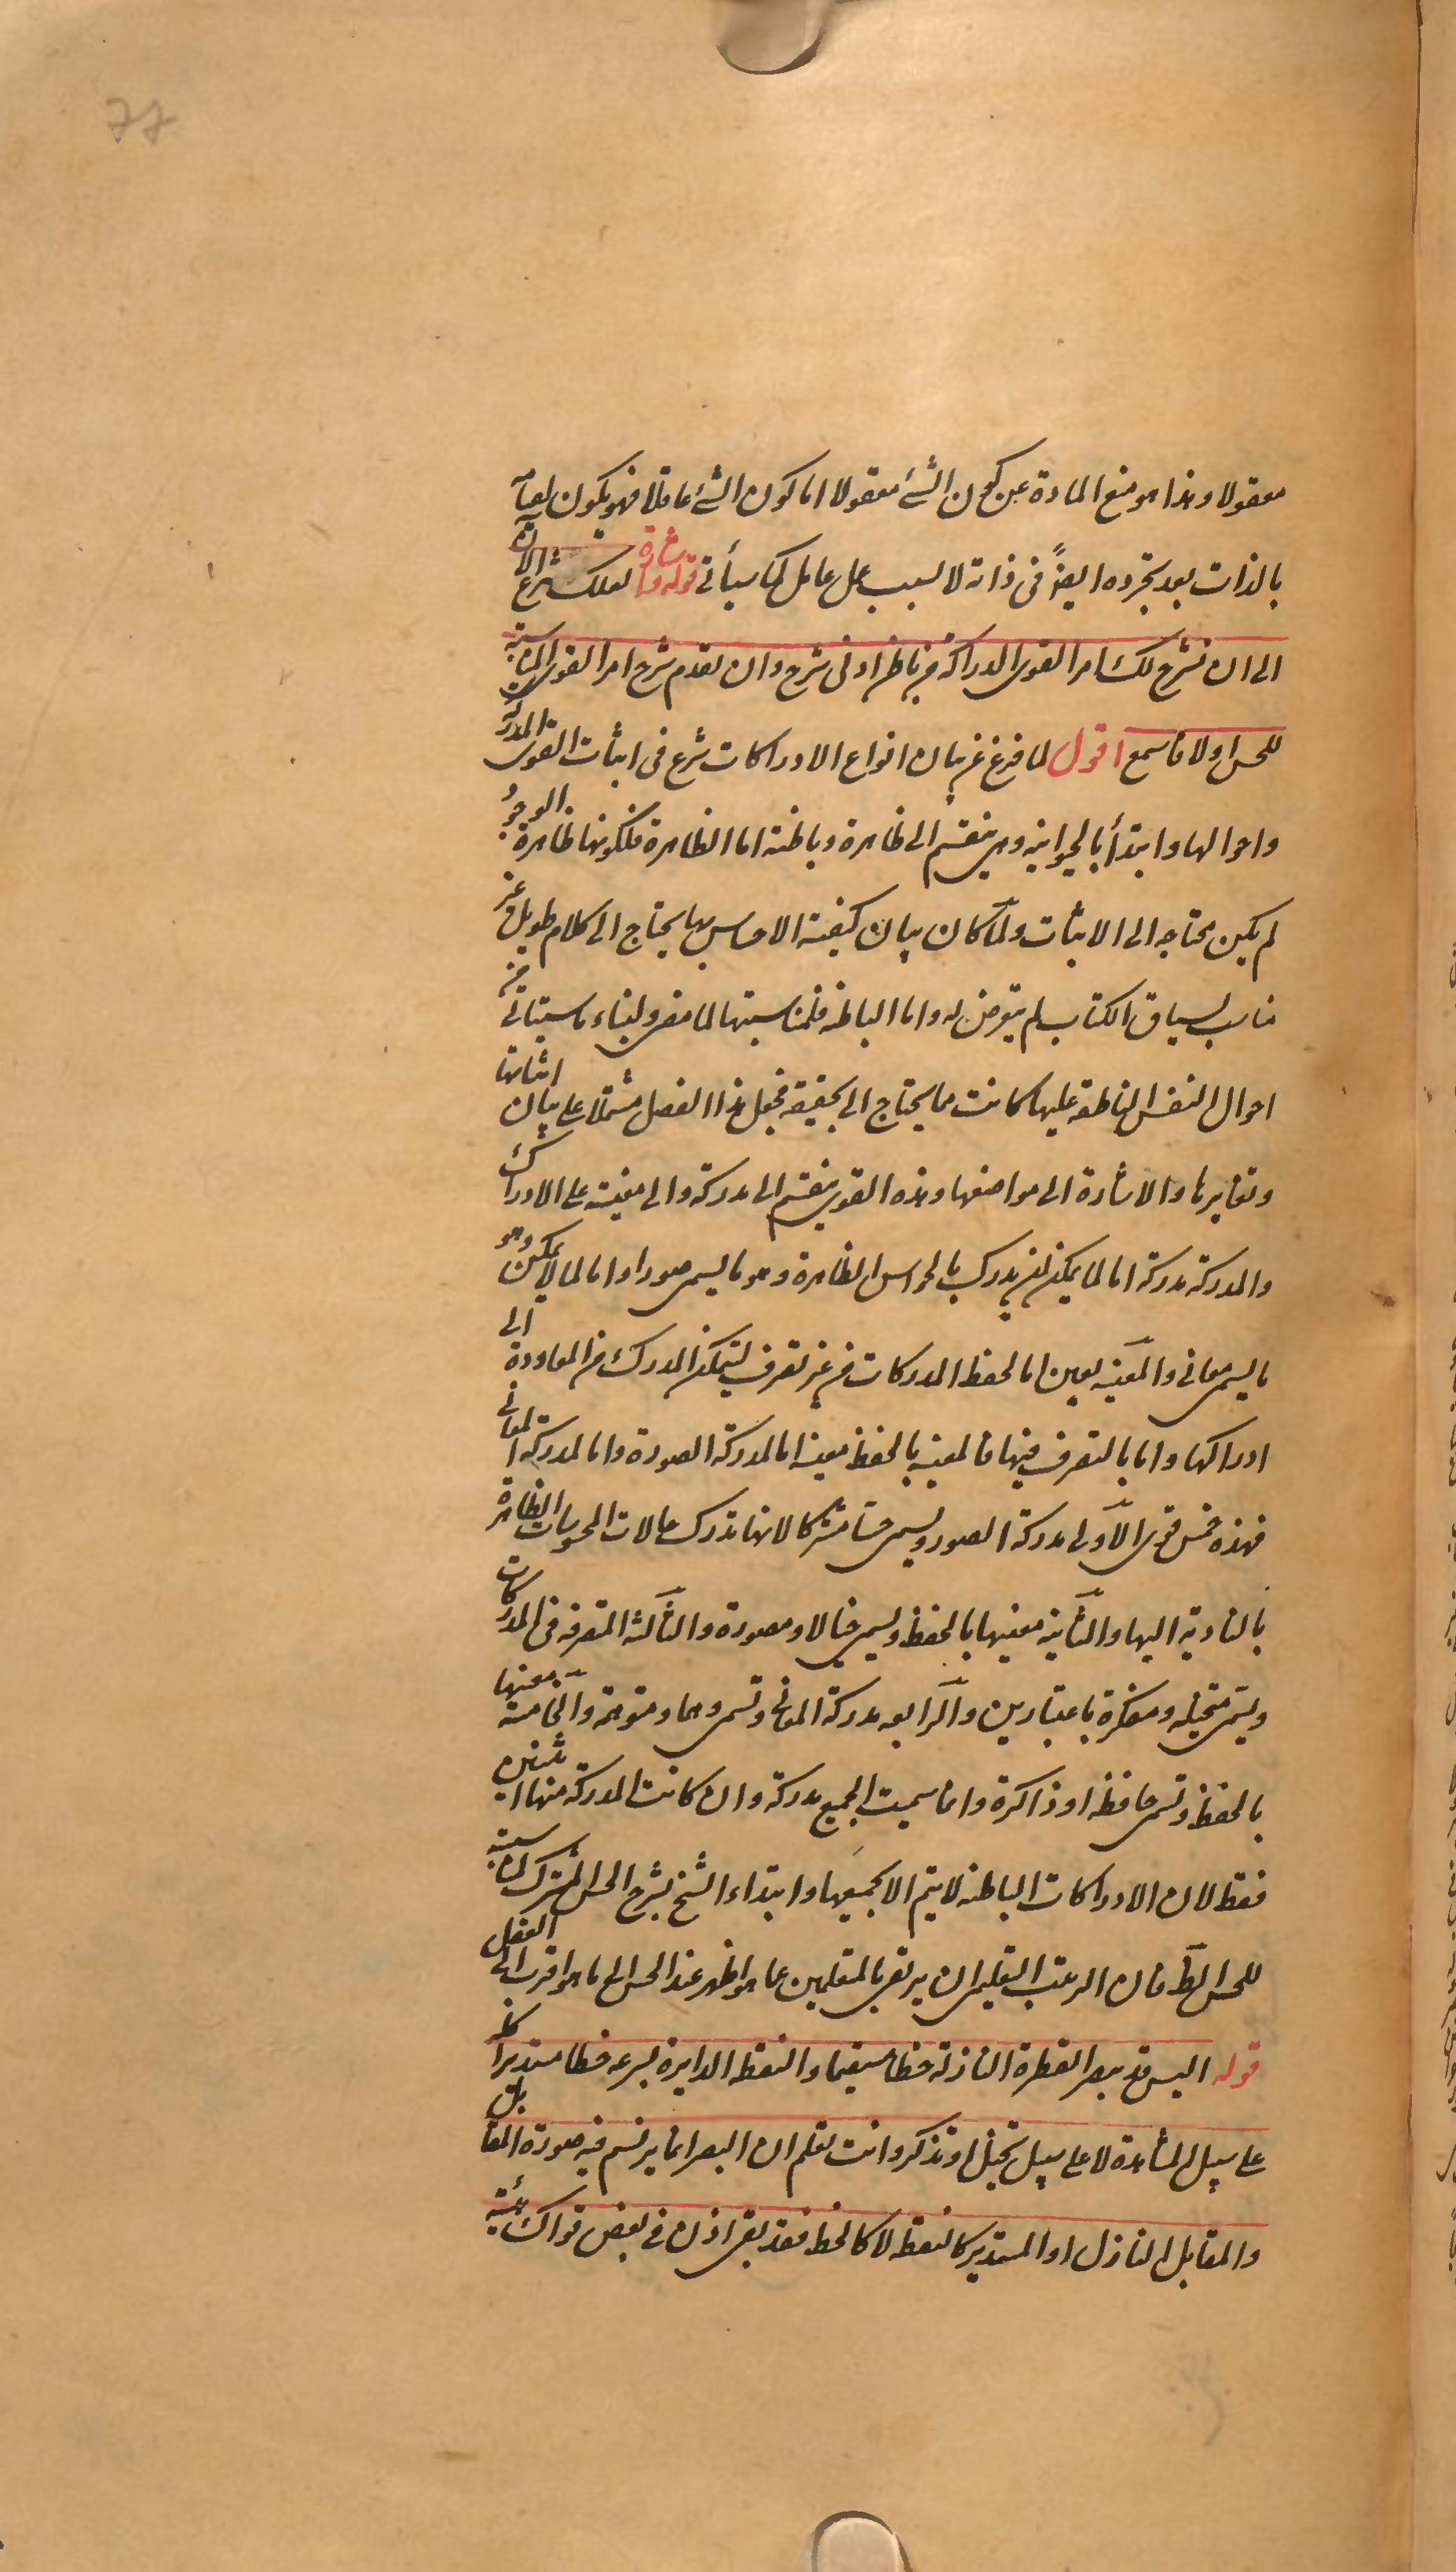 77
معقولا وهذا هو منع المادة عن كون الشئ معقولا اما كون الشئ عاقلا فهو يكون لقيامه
بالذات بعد تجرده ايضاً فى ذاته لا لسبب عمل عامل كما سيأتى قوله اشارة لعلك تنزع الآن
الى ان نشرح لك امر القوى الدراكة من باطن ادنى شرح وان نقدم شرح امر القوى المناسبة
للحس اولا فاسمع اقول لما فرغ عن بيان انواع الادراكات شرع فى اثبات القوى المدركة
واحوالها وابتدأ بالحيوانية وهى ينقسم الى ظاهرة وباطنة اما الظاهرة فلكونها ظاهرة الوجود
لم يكن محتاجه الى الاثبات ولمّا كان بيان كيفية الاحساس بها يحتاج الى كلام طويل غير
مناسب لسياق الكتاب لم يتعرض له واما الباطنة فلمناسبتها لما مضى ولبناء ما سيأتى من
احوال النفس الناطقة عليها كانت مما يحتاج الى تحقيقه فجعل هذا الفصل مشتملا على بيان اثباتها
وتغايرها والاشارة الى مواضعها وهذه القوى ينقسم الى مدركة والى معينة على الادراك
والمدركة مدركة اما لما يمكن ان يدرك بالحواس الظاهرة وهو ما يسمى صورا واما لما لا يمكن وهو
ما يسمى معانى والمعينة تعين اما لحفظ المدركات من غير تصرف ليتمكن المدرك من المعاودة الى
ادراكها واما بالتصرف فيها فالمعينة بالحفظ معينة اما لمدركة الصورة واما لمدركة المعانى
فهذه خمس قوى الاولى مدركة الصور ويسمى حسا مشتركا لانها تدرك خيالات المحسوسات الظاهرة
بالتادية اليها والثانية معينها بالحفظ ويسمى خيالا ومصورة والثالثة المتصرفة فى المدركات
ويسمى متخيلة ومفكرة باعتبارين والرابعه مدركة المعانى وتسمى وهما ومتوهمة والخامسة معينها
بالحفظ وتسمى حافظه او ذاكرة وانما سميت الجميع مدركة وان كانت المدركة منها اثنين
فقط لان الادراكات الباطنة لا يتم الا بجميعها وابتداء الشيخ بشرح الحس المشترك لمناسبته
للحس الظ فان الترتيب التعليمى ان يرتقى بالمتعلمين عما هو اظهر عند الحس الى ما هو اقرب الى العقل
قوله اليس قد يبصر القطرة النازلة خطا مستقيما والنقطة الدايرة بسرعه خطا مستديرا كله
على سبيل المشاهدة لا على سبيل تخيل او تذكر وانت تعلم ان البصر انما يرتسم فيه صورة المقابل
والمقابل النازل او المستدير كالنقطة لا كالخط فقد بقى اذن فى بعض قواك هيئة